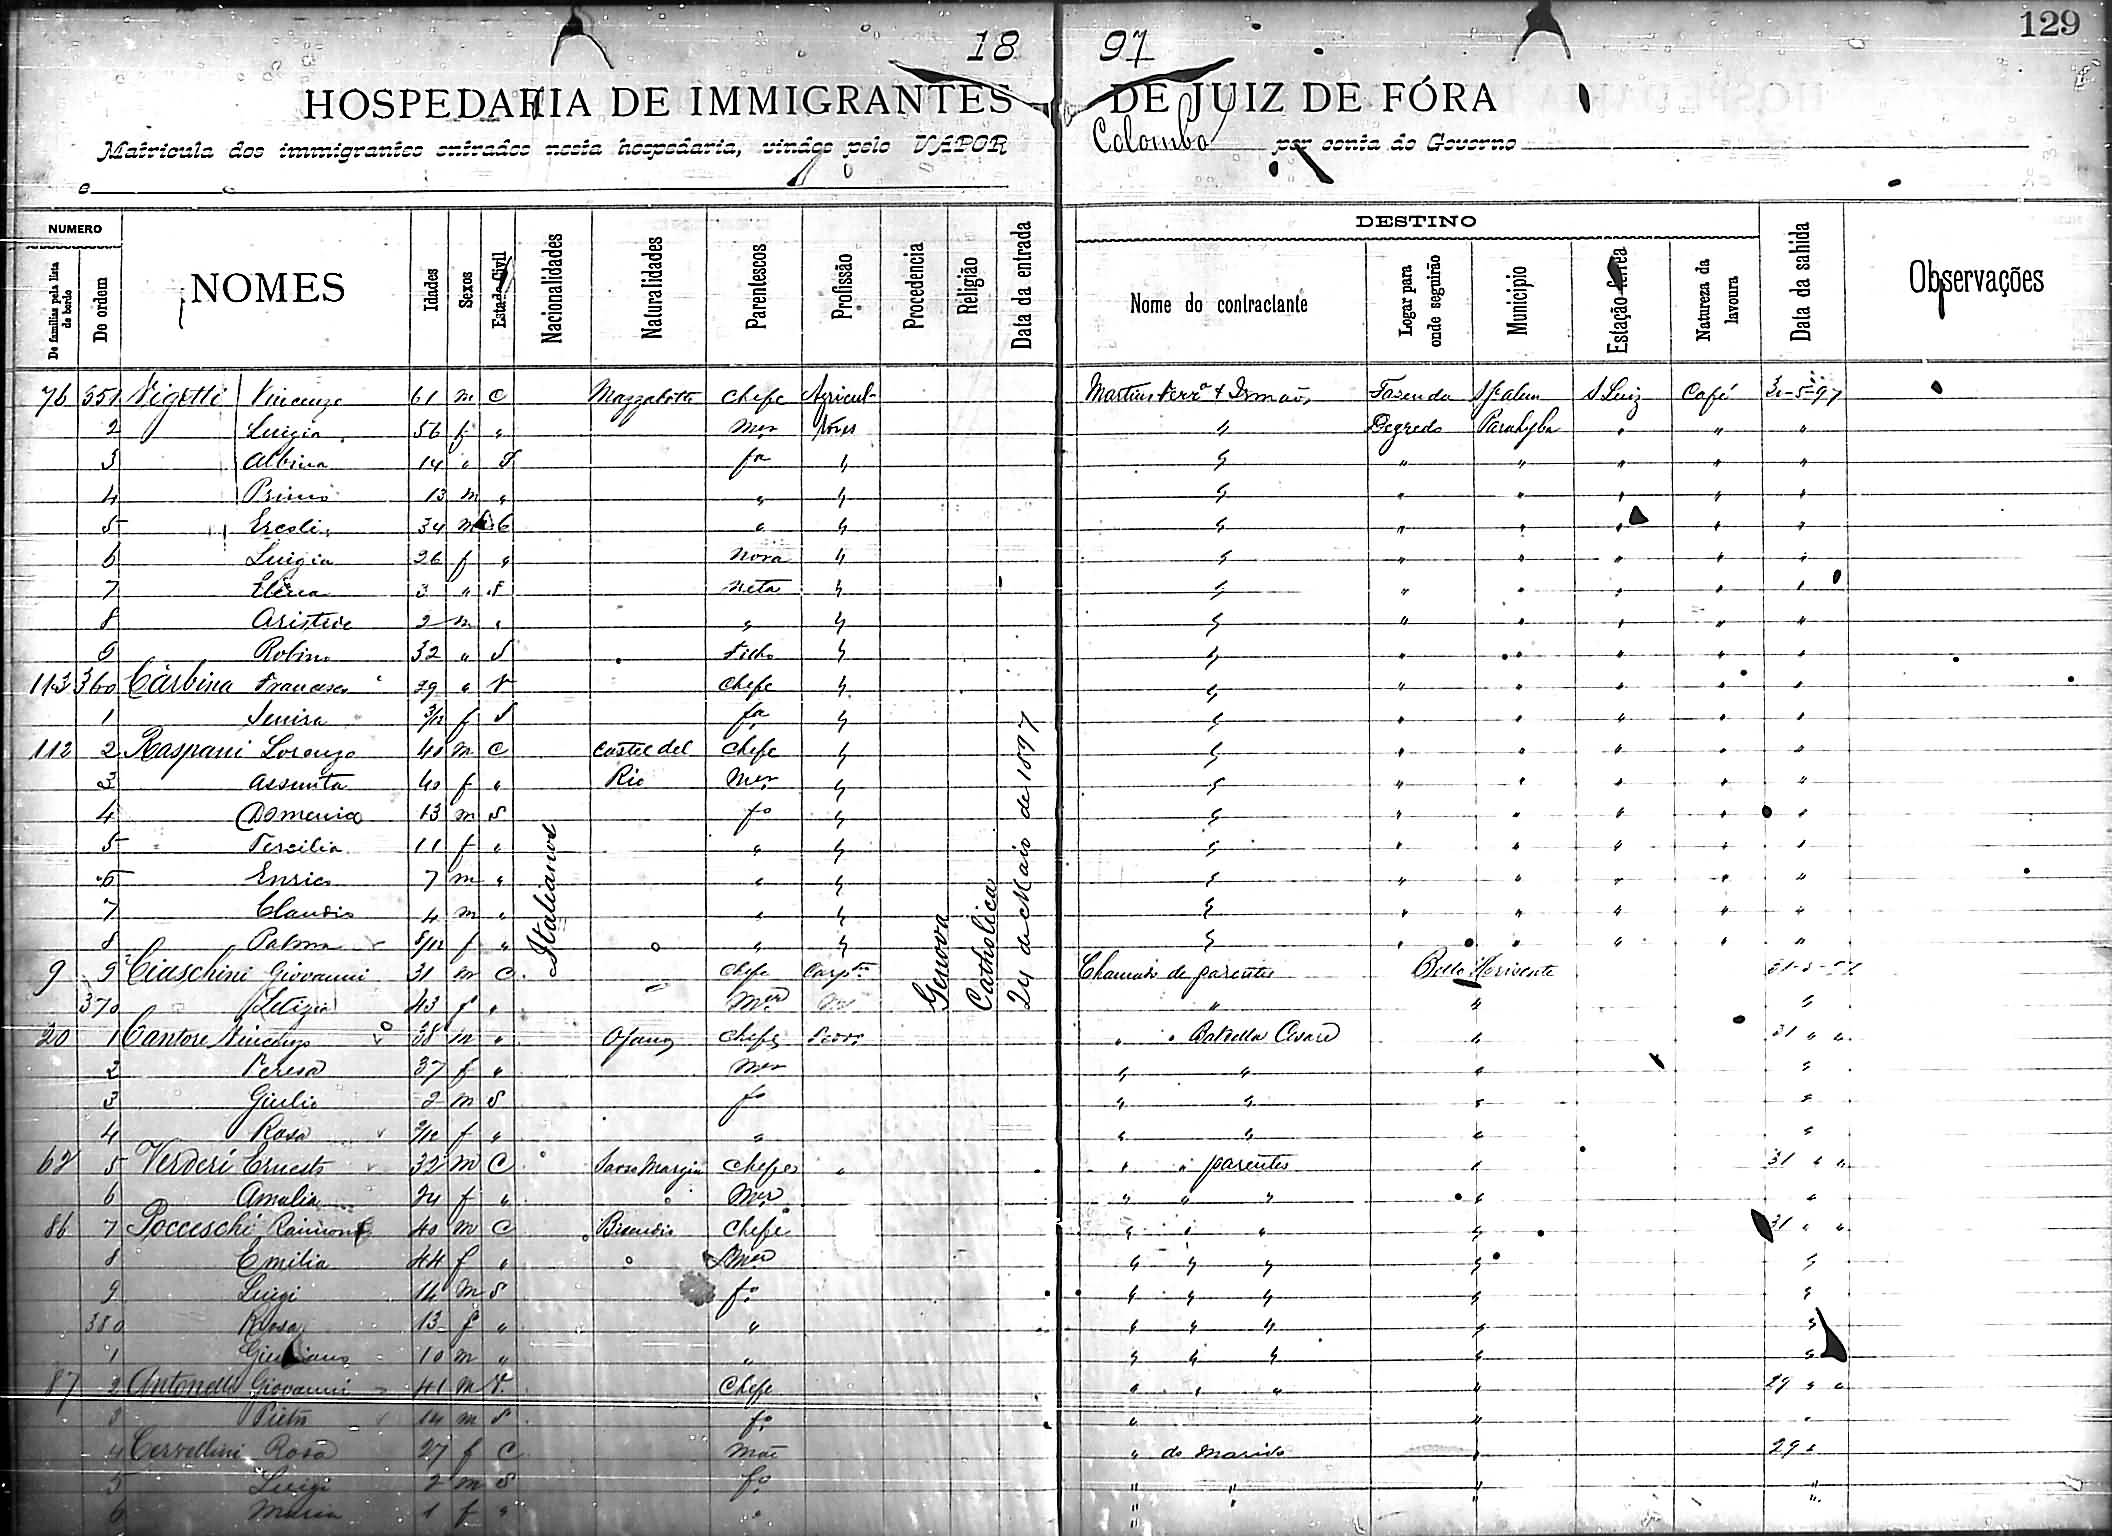 129
18 97
HOSPEDARIA DE IMMIGRANTES DE JUIZ DE FÓRA
Matricula dos immigrantes entrados nesta hospedaria, vindos pelo VAPOR Colombo por conta do Governo
NUMERO DESTINO
De familias pela lista de bordo Do ordem NOMES Idades Sexos Estado Civil Nacionalidades Naturalidades Parentescos Profissão Procedencia Religião Data da entrada Nome do contractante Logar para onde seguirão Municipio Estação ferrea Natureza da lavoura Data da sahida Observações
76 551 Vigetti Vincenzo 61 m C Chefe Agricul- Martins Ferrª & Irmão, Fazenda S Luiz Café 30-5-97
2 Luigia 56 f " mer tores " Degredo Parahyba " " "
3 Albina 14 " S fa " " " " " " "
4 Primo 13 m " " " " " " " " "
5 Ercoli 34 m C " " " " " " " "
6 Luigia 26 f " Nora " " " " " " "
7 Elena 3 " S Neta " " " " " " "
8 Aristide 2 m " " " " " " " " "
9 Robino 32 " S Filho " " " " " " "
113 360 Carbina Francesco 39 " V Chefe " " " " " " "
1 3/12 f S fa " " " " " " "
112 2 Raspani Lorenzo 40 m C Castel del Chefe " " " " " " "
3 Assunta 40 f " Rio Mer " " " " " " "
4 Domenico 13 m S fo " " " " " " "
5 Tersilia 11 f " " " " " " " " "
6 Enrico 7 m " " " " " " " " "
7 Claudio 4 m " " " " " " " " "
8 Palma 8/12 f " " " " " " " " "
Italianos Genova Catholica 24 de Maio de 1897
9 9 Ciaschini Giovanni 31 m C Chefe Carptro Chamado de parentes Bello Horisonte
370 Letizia 43 f " Mer " " "
20 1 Cantore Vincenzo 38 m " Chefe " " Cesare " 31 " "
2 Teresa 37 f " Mer " " " "
3 Giulio 2 m S fo " " " "
4 Rosa f " " " " " "
62 5 Verderi Ernesto 32 m C Chefe " " " parentes " 31 " "
6 Amalia 24 f " Mer " " " " "
86 7 Pocceschi Raimondo 40 m C Chefe " " " " 31 " "
8 Emilia 44 f " Mer " " " " "
9 Luigi 14 m S fo " " " " "
380 Rosa 13 f " " " " " " "
1 Giuliano 10 m " " " " " " "
87 2 Antonelli Giovanni 41 m V. Chefe " " " " 29 " "
3 Pietro 14 m S fo " " "
4 Cervellini Rosa 27 f C Mãe " do marido " 29 "
5 Luigi 2 m S fo " " " "
6 Maria 1 f " " " " "